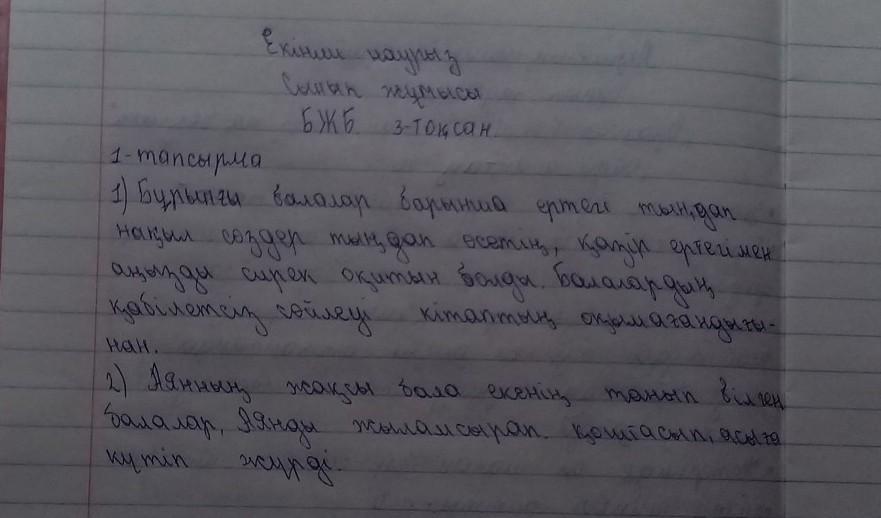 Екінші наурыз
Сынып жұмысы
БЖБ 3-тоқсан
1-тапсырма
1) Бұрынғы балалар барынша ертегі тыңдап
нақыл сөздер тыңдап өсетің, қазір ертегімен
аңызды сирек оқитын болды. Балалардың
қабілетсіз сөйлеуі кітаптың оқымағандығы-
нан.
2) Аянның жақсы бала екенің танып білген
балалар, Аянды жыламсырап. қоштасып, асыға
күтіп жүрді.